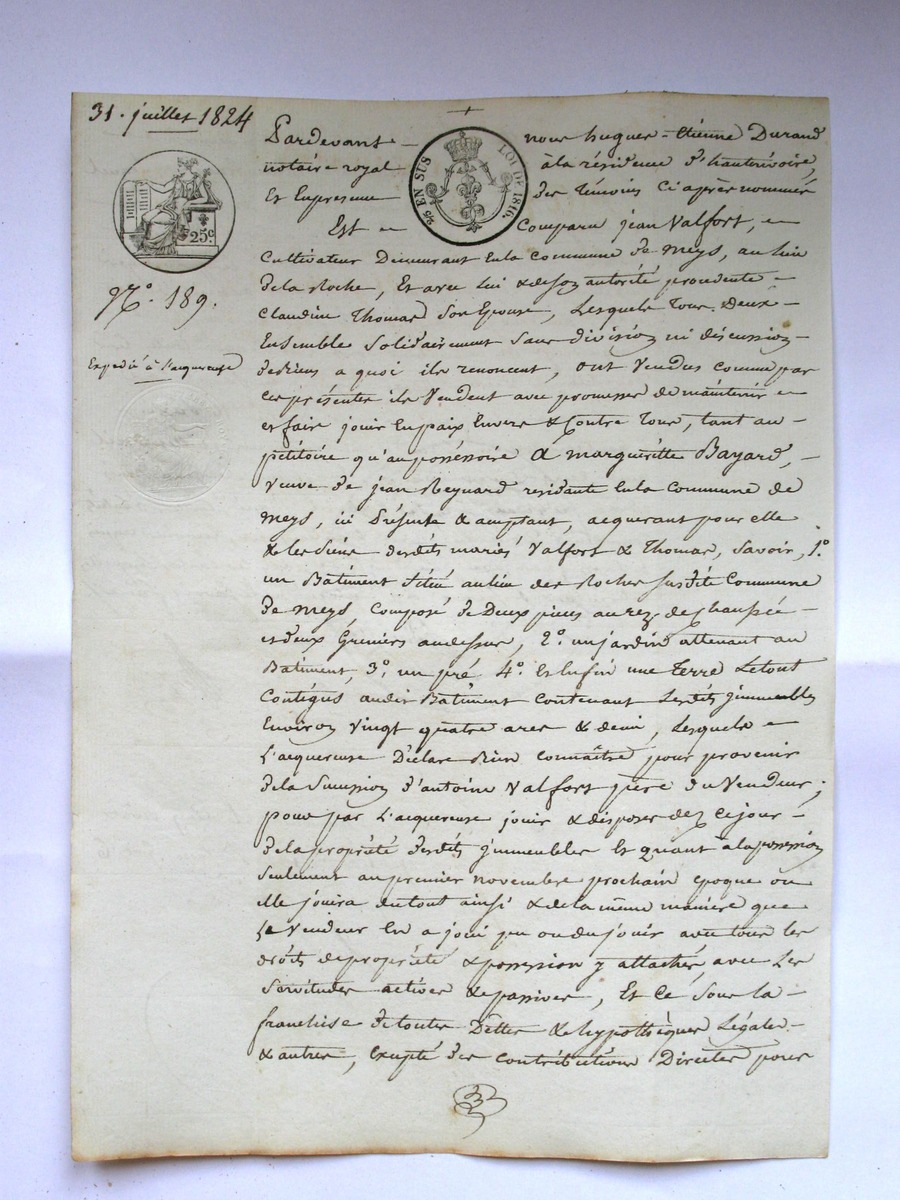 31. juillet 1824
25 EN SUS
LOI DE 1816.
25c
N.o 189.
Expedié à l'acquereuse
Pardevant nous hugues-Etienne Durand
notaire royal à la résidence d'hauterivoire,
Et En presence des temoins ci après nommés
Est Comparu jean Valfort,
Cultivateur Demeurant En la Commune de Meys, au lieu
de la Roche, Et avec lui & de son autorité procedente
Claudine Thomas son Epouse, Lesquels Tous Deux
Ensemble Solidairement Sans division ni discussion
de biens a quoi ils renoncent, ont Vendus comme par
ces présentes ils Vendent avec promesse de maintenir
et faire jouir En paix Envers & Contre Tous, tant au
pétitoire qu'au posséssoire A margueritte Bayard,
Veuve de jean Reynard residante En la Commune de
Meys, ici Présente & acceptant, acquerant pour elle
& les Siens desdits mariés Valfort & Thomas, Savoir, 1.o
un Batiment Situé au lieu des Roches Susdite Commune
de Meys, Composé de Deux pieces au rez de Chaussée
et deux Greniers au dessus, 2.o un jardin attenant au
Batiment, 3.o un pré 4.o Et Enfin une Terre Le tout
Contigus audit Batiment Contenant Lesdits jmmeubles
Environ Vingt quatre ares & demi, Lesquels
L'acquereuse Déclare Bien connaître pour provenir
de la Succession d'antoine Valfort père du Vendeur;
pour par L'acquereuse jouir & disposer dez Ce jour
de la propriété desdits jmmeubles Et quant à la possession
Seulement au premier novembre prochain époque où
Elle jouira du tout ainsi & de la même manière que
Le Vendeur En a joui pu ou du jouir avec tous les
droits de propriété & possession y attachés, avec Les
Servitudes actives & passives, Et Ce Sous la
franchise de toutes Dettes & hypothèques Légales
& autres, Excepté des Contributions Directes pour